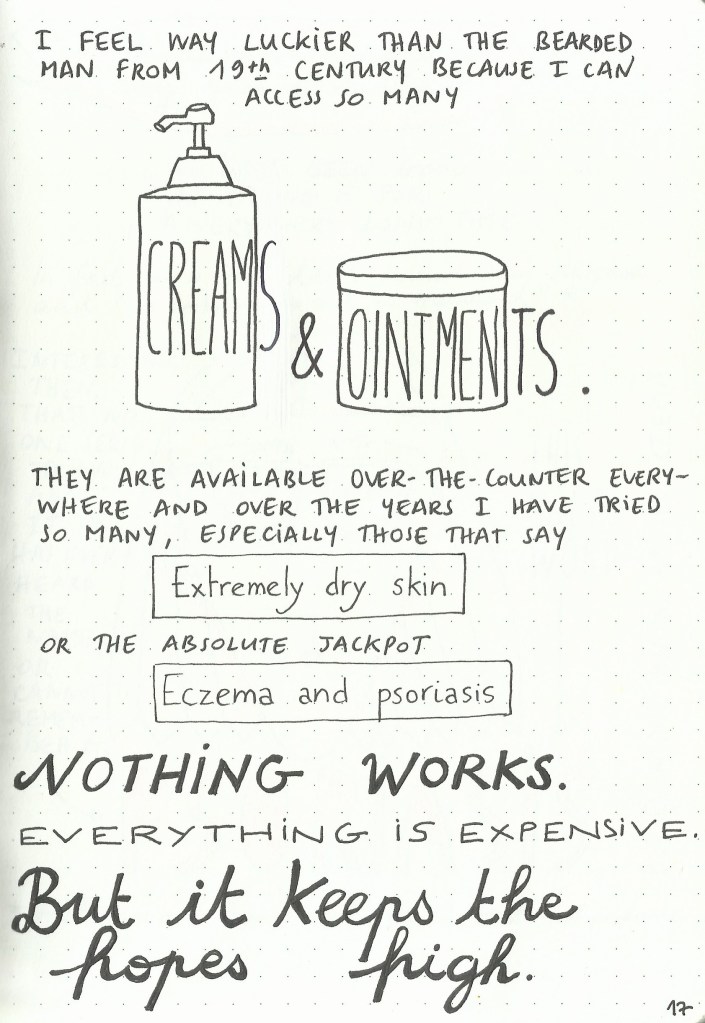 I FEEL WAY LUCKIER THAN THE BEARDED
MAN FROM 19th CENTURY BECAUSE I CAN
ACCESS SO MANY
CREAMS
& OINTMENTS.
THEY ARE AVAILABLE OVER-THE-COUNTER EVERY-
WHERE AND OVER THE YEARS I HAVE TRIED
SO MANY, ESPECIALLY THOSE THAT SAY
Extremely dry skin
OR THE ABSOLUTE JACKPOT
Eczema and psoriasis
NOTHING WORKS.
EVERYTHING IS EXPENSIVE.
But it keeps the
hopes high.
17